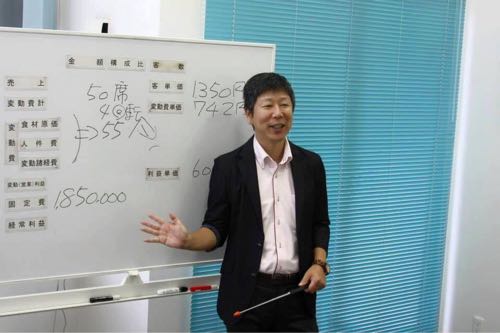 金額 構成比 客数
売上 50席 客単価 1350円
変動費計 4回転 変動費単価 742円
変動費 食材原価 55%
人件費
変動諸経費 利益単価 60
変動(営業)利益
固定費 1850.000
経常利益